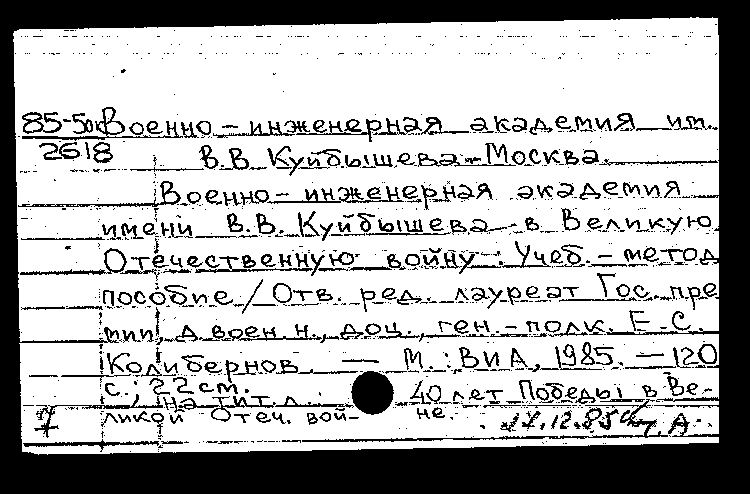 85-50к Военно-инженерная академия им.
2618 В.В. Куйбышева-Москва.
Военно-инженерная академия
имени В.В. Куйбышева в Великую
Отечественную войну: Учеб.-метод
пособие/Отв. ред. лауреат Гос. пре
мии, д воен. н., доц., ген.-полк. Е.С.
Колибернов. — М.: ВИА, 1985. — 120
с.; 22 см.
На тит. л.: 40 лет Победы в Ве-
ликой Отеч. вой- не.
17.12.85